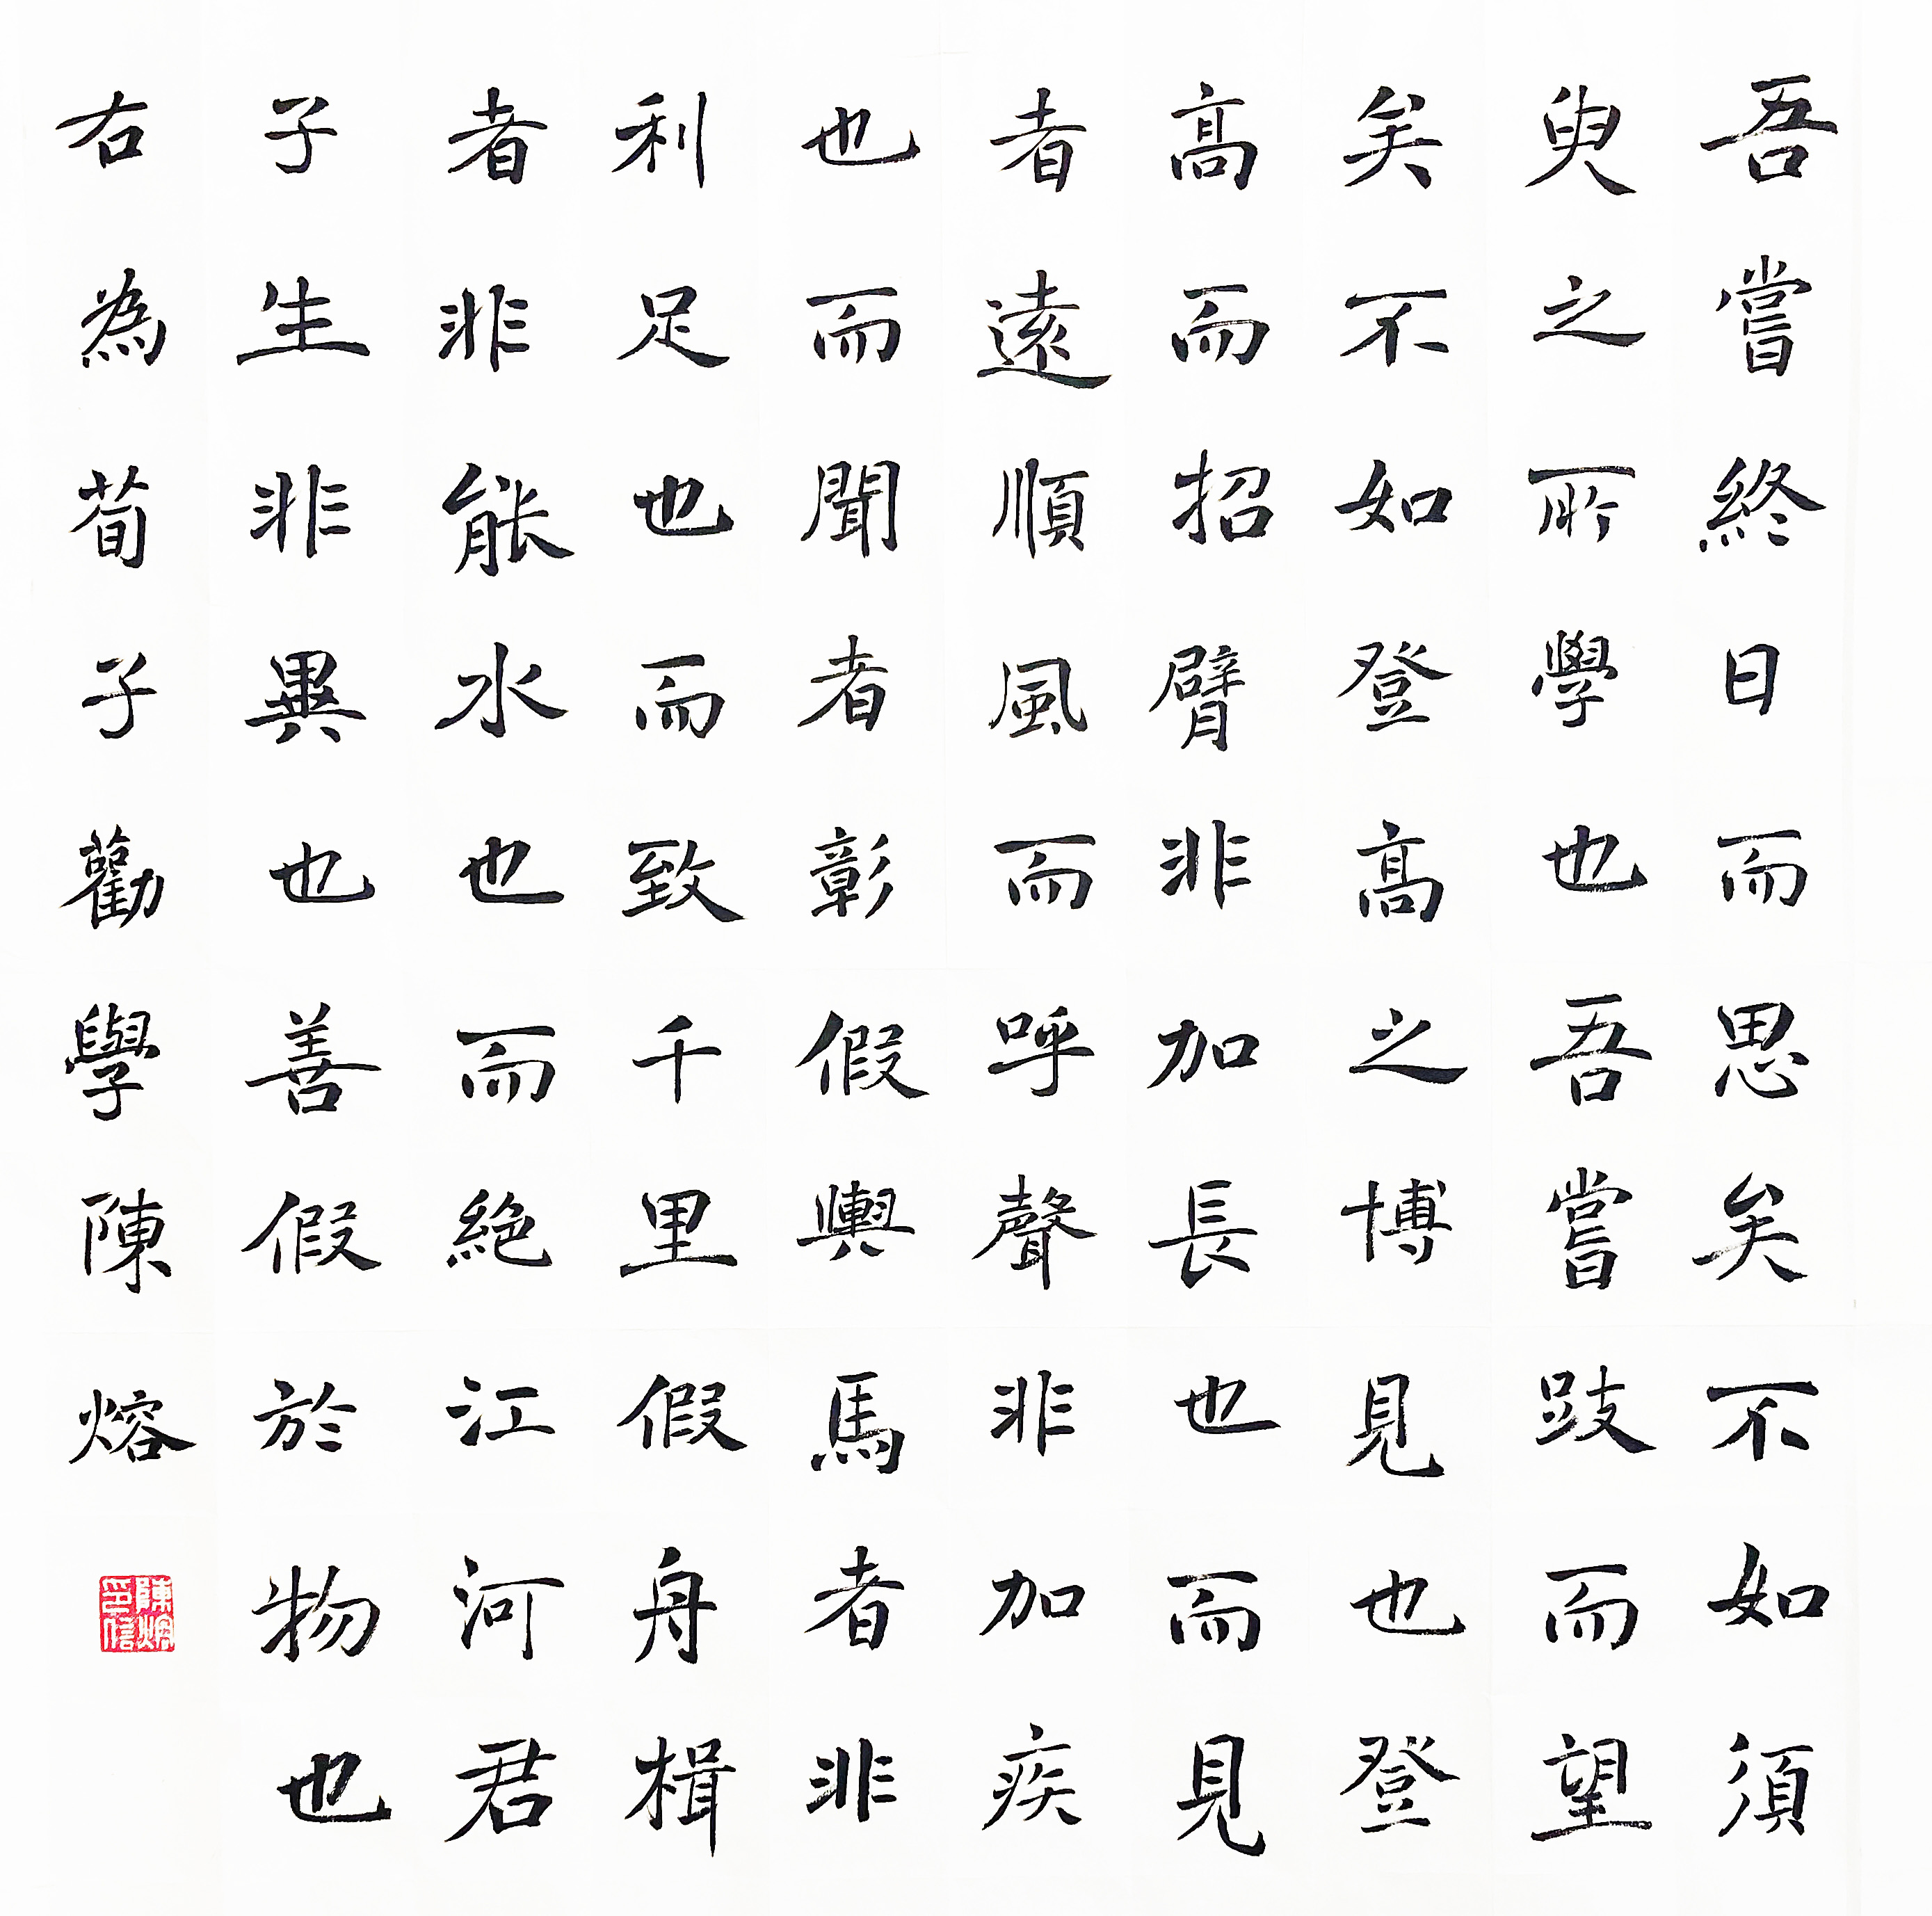 吾嘗終日而思矣不如須
臾之所學也吾嘗跂而望
矣不如登高之博見也登
高而招臂非加長也而見
者遠順風而呼聲非加疾
也而聞者彰假輿馬者非
利足也而致千里假舟楫
者非能水也而絕江河君
子生非異也善假於物也
右為荀子勸學陳熔
陳熔印信